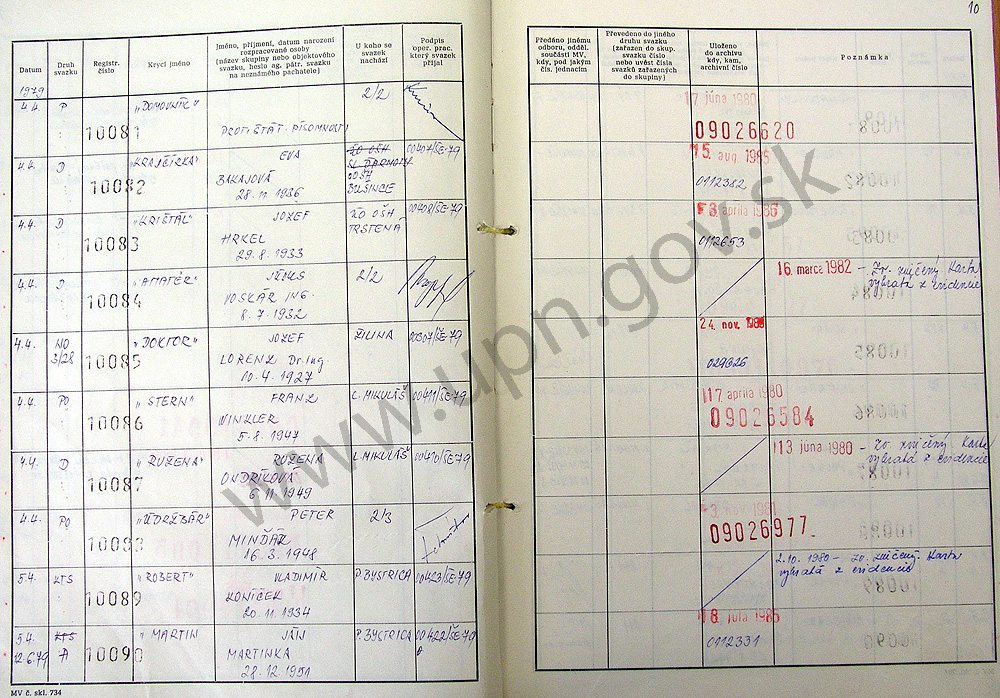 10
Datum
Druh
svazku
Registr.
číslo
Krycí jméno
Jméno, příjmení, datum narození
rozpracované osoby
(název skupiny nebo objektového
svazku, heslo ag. pátr. svazku
na neznámého pachatele)
U koho se
svazek
nachází
Podpis
oper. prac.
který svazek
přijal
Předáno jinému
odboru, odděl.
součásti MV,
kdy, pod jakým
čís. jednacím
Převedeno do jiného
druhu svazku
(zařazen do skup.
svazku číslo
nebo uvést čísla
svazků zařazených
do skupiny)
Uloženo
do archivu
kdy, kam,
archivní číslo
Poznámka
1979
4.4. P 10081 "DOMOVNÍK" 2/2
PROTIŠTÁT. PÍSOMNOSTI
17 júna 1980
09026620
4.4. D 10082 "KRAJČÍRKA" EVA
BAKAJOVÁ
28. 11. 1936
OOŠH
BUŠINCE
00407/ŠE-79
15. aug. 1985
0112382
4.4. D 10083 "KRIŠTÁL" JOZEF
HRKEL
29. 8. 1933
ŽO OŠH
TRSTENÁ
00408/ŠE-79
8. apríla 1986
0112653
4.4. D 10084 "AMATÉR" JÚLIUS 2/2
VOSKÁR ING.
8. 7. 1932
16. marca 1982 – Zv. zničený karta
vybratá z evidencie
4.4. NO
3/28
10085 "DOKTOR" JOZEF ŽILINA 00307/ŠE-79
LORENZ Dr. Ing
10. 4. 1927
24. nov.
029326
4.4. PO 10086 "STERN" FRANZ L. MIKULÁŠ 00411/ŠE-79
WINKLER
5. 8. 1947
17 apríla 1980
09026584
4.4. D 10087 "RUŽENA" RUŽENA L. MIKULÁŠ 00410/ŠE-79
ONDRÍKOVA
6. 11. 1949
13 júna 1980 – Zv. zničený karta
vybratá z evidencie
4.4. PO 10088 "ÚDRŽBÁR" PETER 2/3
MINĎÁŽ
16. 3. 1948
09026977
5.4. KTS 10089 "ROBERT" VLADIMÍR P. BYSTRICA 00423/ŠE-79
KONÍČEK
20. 11. 1934
2. 10. 1980 – zv. zničený. karta
vybratá z evidencie
5.4. KTS 10090 "MARTIN JÁN P. BYSTRICA 00422/ŠE-79
12.6.79 A
MARTINKA
28. 12. 1951
18 júla 1985
0112331
MV č. skl. 734
www.upn.gov.sk